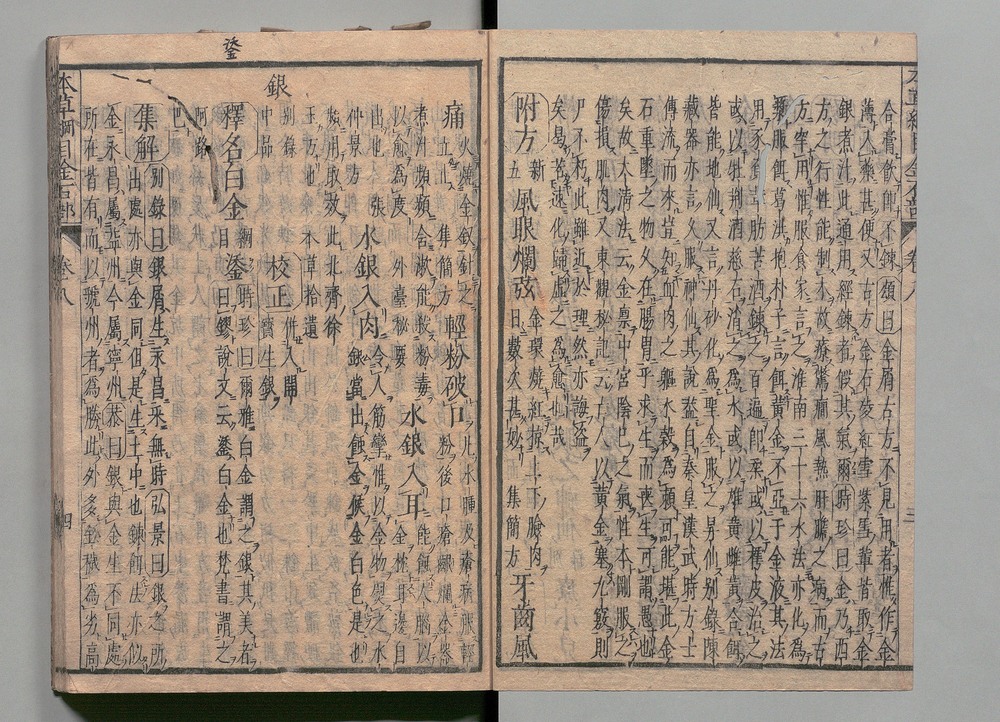 合膏飲即不鍊頌曰金屑古方不見用者惟作金
薄入藥甚便又古方金石凌紅雪紫雪輩皆取金
銀煮汁此通用經鍊者假其氣爾時珍曰金乃西
方之行性能制木故療驚癇風熱肝膽之病而古
方罕用惟服食家言之淮南三十六水法亦化為
漿服餌葛洪抱朴子言餌黃金不亞于金液其法
用豕負革肪苦酒鍊之百遍即柔或以樗皮治之
或以牡荊酒慈石消之為水或以雄黃雌黃合餌
皆能地仙又言丹砂化為聖金服之昇仙別錄陳
藏器亦言久服神仙其說蓋自秦皇漢武時方士
傳流而來豈知血肉之軀水穀為賴可能堪此金
石重墜之物久在腸胃乎求生而喪生可謂愚也
矣故太清法云金稟中宮陰己之氣性本剛服之
傷損肌肉又東觀秘記云亡人以黃金塞九竅則
尸不朽此雖近於理然亦誨盜
矣曷若速化歸虛之為愈也哉
附方 新五 風眼爛弦 金環燒紅掠上下瞼肉日數次甚妙 集簡方 牙齒風
痛 火燒金釵針之立止 集簡方 輕粉破口 凡水腫及瘡病服輕粉後口瘡齦爛金器
煮汁頻頻含漱能殺粉毒以愈為度 外臺秘要 水銀入耳 能蝕人腦以金枕耳邊自
出也 張仲景方 水銀入肉 令人筋攣惟以金物熨之水銀當出蝕金候金白色是也
頻用取效此北齊徐王方也 本草拾遺
銀 別錄中品 校正 併入開寶生銀
鋈
釋名白金 綱目 鋈 時珍曰爾雅白金謂之銀其美者曰鐐說文云鋈白金也梵書謂之
阿路巴
集解 別錄曰銀屑生永昌采無時弘景曰銀之所
出處亦與金同但是生土中也鍊餌法亦似
金永昌屬益州今屬寧州恭曰銀與金生不同處
所在皆有而以虢州者為勝此外多鉛穢為劣高
本草綱目金石部 卷八 四